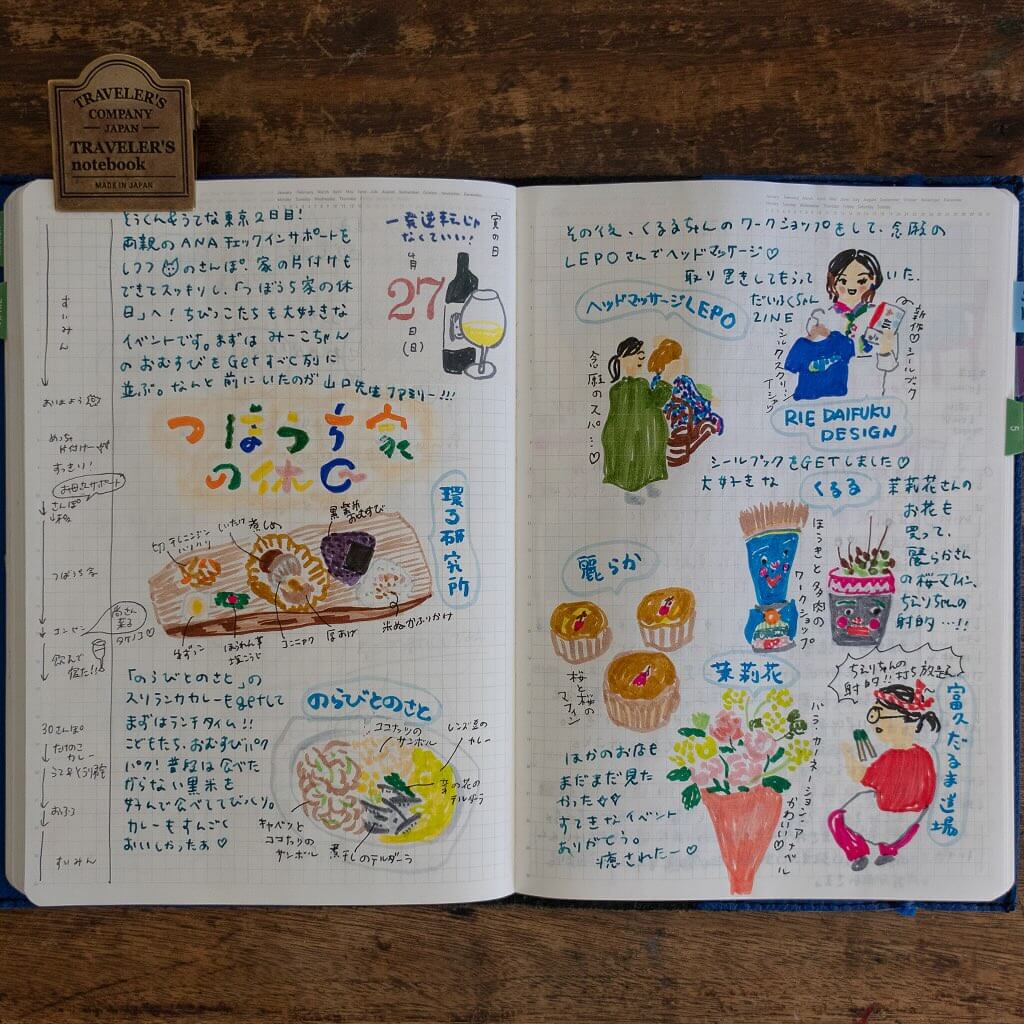 TRAVELER'S
COMPANY
JAPAN
TRAVELER'S
notebook
MADE IN JAPAN
な東京2日目!
両親のANAチェックインサポートも
しつつ のさんぽ。家の片付けも
できてスッキリし、「つぼうち家の休
日」へ! ちびっこたちも大好きな
イベントです。まずは みーこちゃん
の おむすびを Getすべく列に
並ぶ。なんと 前にいたのが 山口先生 ファミリー!!!
一発逆転じゃ
なくていい!
4月
27
(日)
寅の日
すいみん
おはよう
めっちゃ
片付け
すっきり!
お母さサポート
さんぽ
つぼうち家
コンセン
タケノコ♡
飲んで
宿だ!!
30さんぽ
たけのこ
カレー
おふろ
すいみん
つぼうち家
の休日
環る研究所
黒米
おむすび
煮しめ
しいたけ
ハリハリ
米ぬかふりかけ
厚あげ
コンニャク
ほうれん草
塩こうじ
「のらびとのさと」の
スリランカカレーもgetして
まずはランチタイム!!
こどもたち、おむすびパク
パク! 普段は食べた
がらない黒米を
好んで食べててびっくり。
カレーもすんごく
おいしかったぁ♡
のらびとのさと
ココナッツの
サンボル
レンズ豆の
カレー
菜の花の
テルダーラ
キャベツと
ココナッツの
サンボル
煮干しのテルダーラ
その後、くるるちゃんのワークショップをして、念願の
LEPOさんでヘッドマッサージ♡
取り置きしてもらって いた、
だいふくちゃん
ZINE
ヘッドマッサージLEPO
念願のスパ…♡
シルクスクリーン
Tシャツ
新作♡シールブック
RIE DAIFUKU
DESIGN
シールブックをGETしました♡
大好きな くるる 茉莉花さんの
お花も
買って、
麗らかさん
の桜マフィン、
ちえりちゃんの
射的…!!
ほうきと多肉の
ワークショップ
麗らか
桜と桜の
マフィン
茉莉花
バラ・カーネーション・アナベル
かわいい♡
ちえりちゃんの
射的!! 打ち放さん
富久だるま道場
ほかのお店も
まだまだ見た
かった
すてきなイベント
ありがとう。
癒されたー♡
5